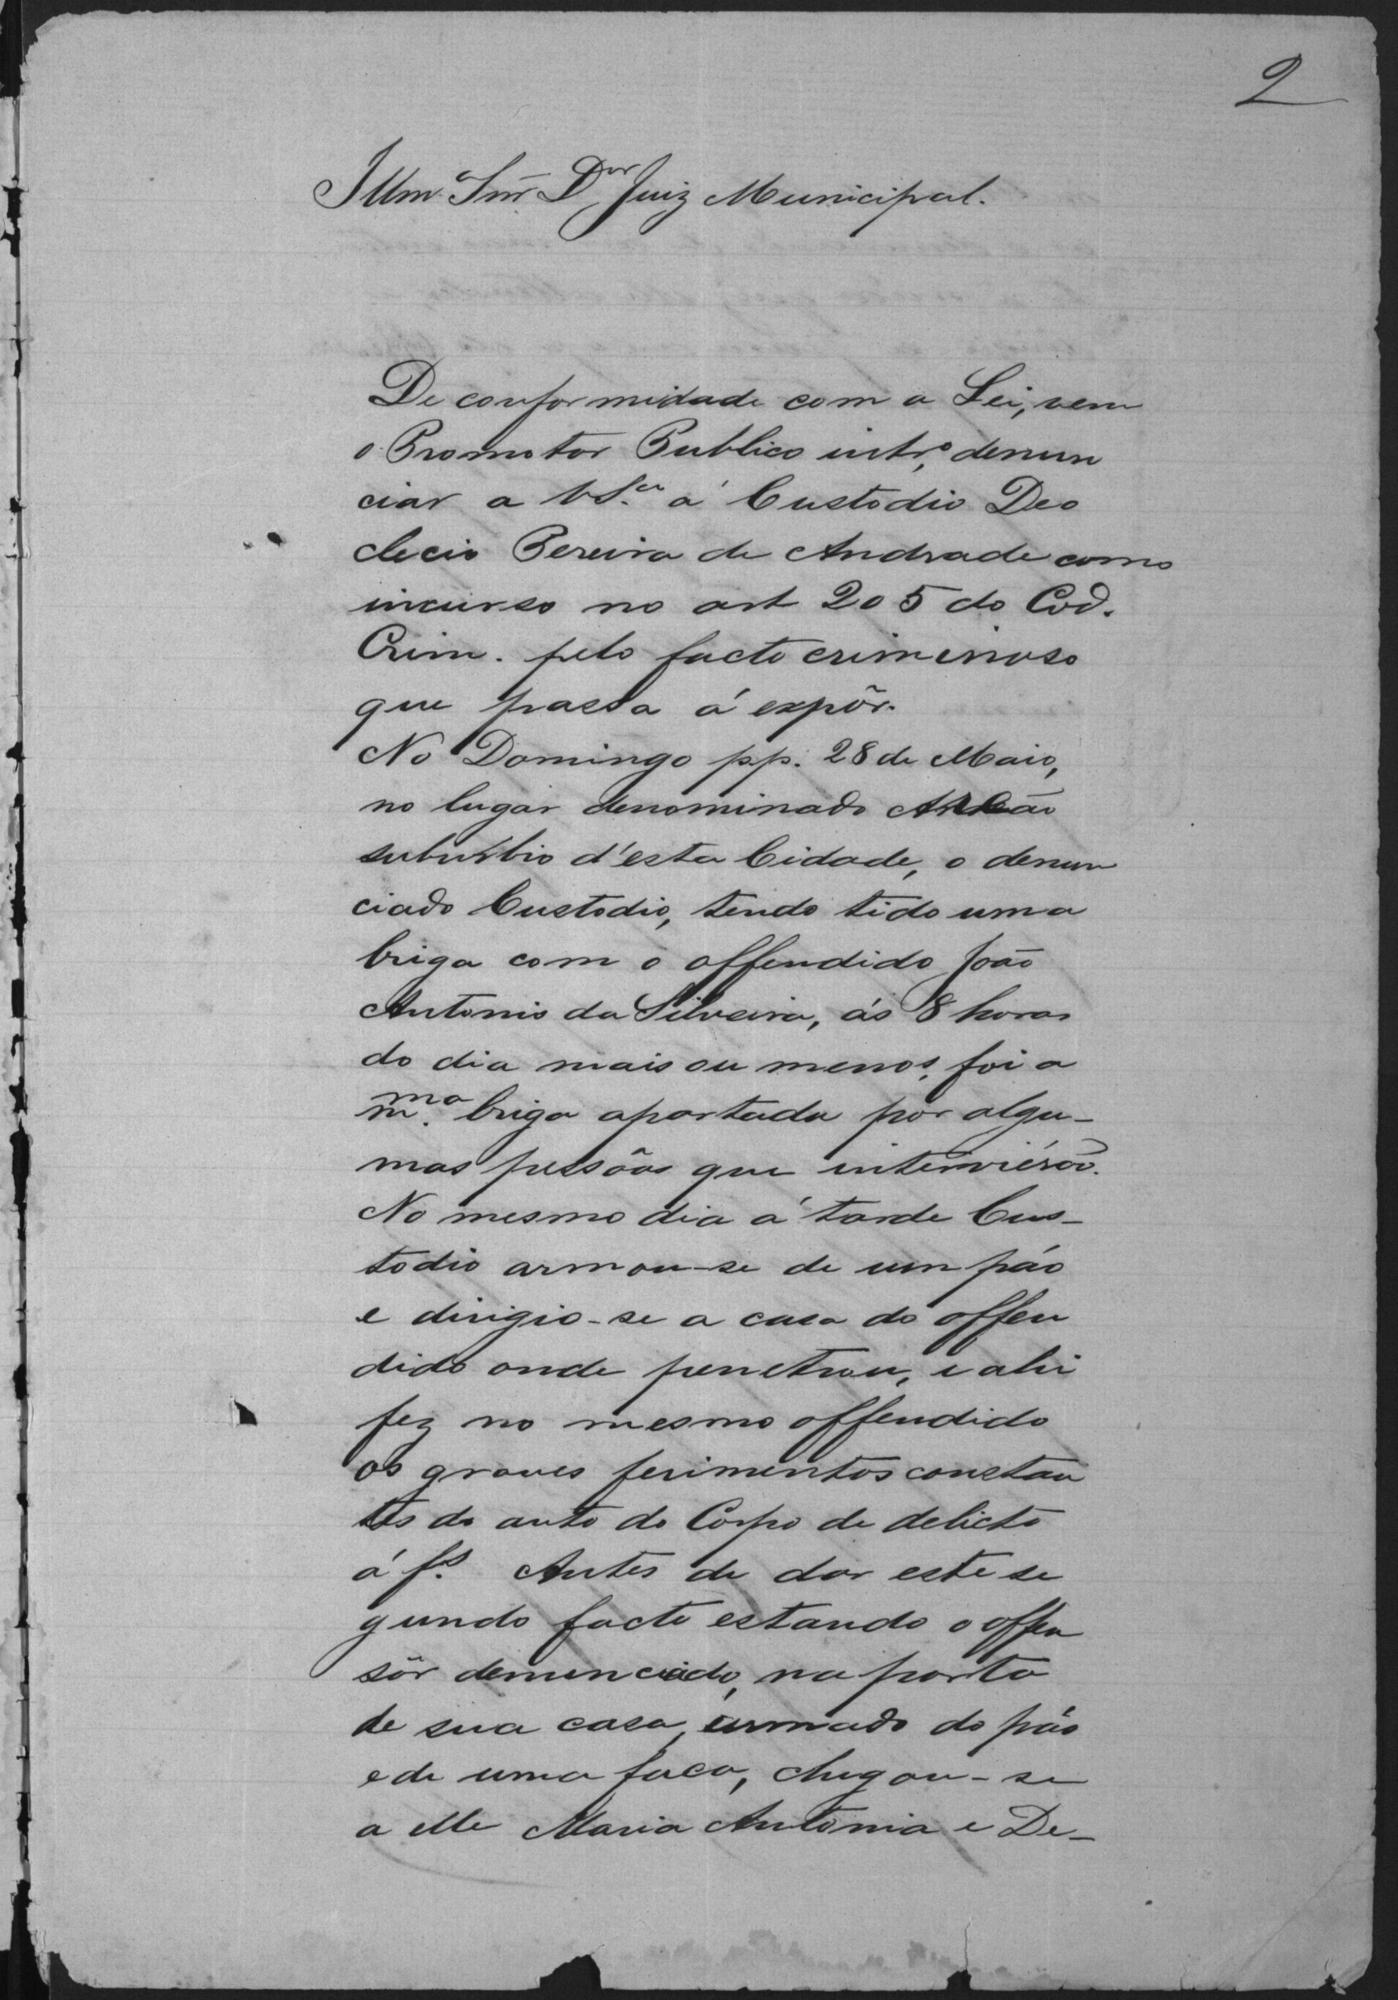 2
Illmº Snr Dor Juiz Municipal.
De conformidade com a Lei, vem
o Promotor Publico intrº, denun
ciar a V.Sª. a Custodio Deo
clecio Pereira de Andrade como
incurso no art 205 do Cod.
Crim. pelo facto criminoso
que passa á expôr.
No Domingo pp. 28 de Maio,
no lugar denominado
suburbio d'esta Cidade, o denun
ciado Custodio, tendo tido uma
briga com o offendido João
Antonio da Silveira, ás 8 horas
do dia mais ou menos, foi a
mma. briga apartada por algu-
mas pessôas que interviérão.
No mesmo dia á tarde Cus-
todio armou-se de um páo
e dirigio-se a casa do offen
dido onde penetrou, e ahi
fez no mesmo offendido
os graves ferimentos constan
tes do auto do Corpo de delicto
á fs. Antes de dar este se
gundo facto estando o offen
sôr denunciado, na porta
de sua casa, armado do páo
e de uma faca, chegou-se
a elle Maria Antonia e De-